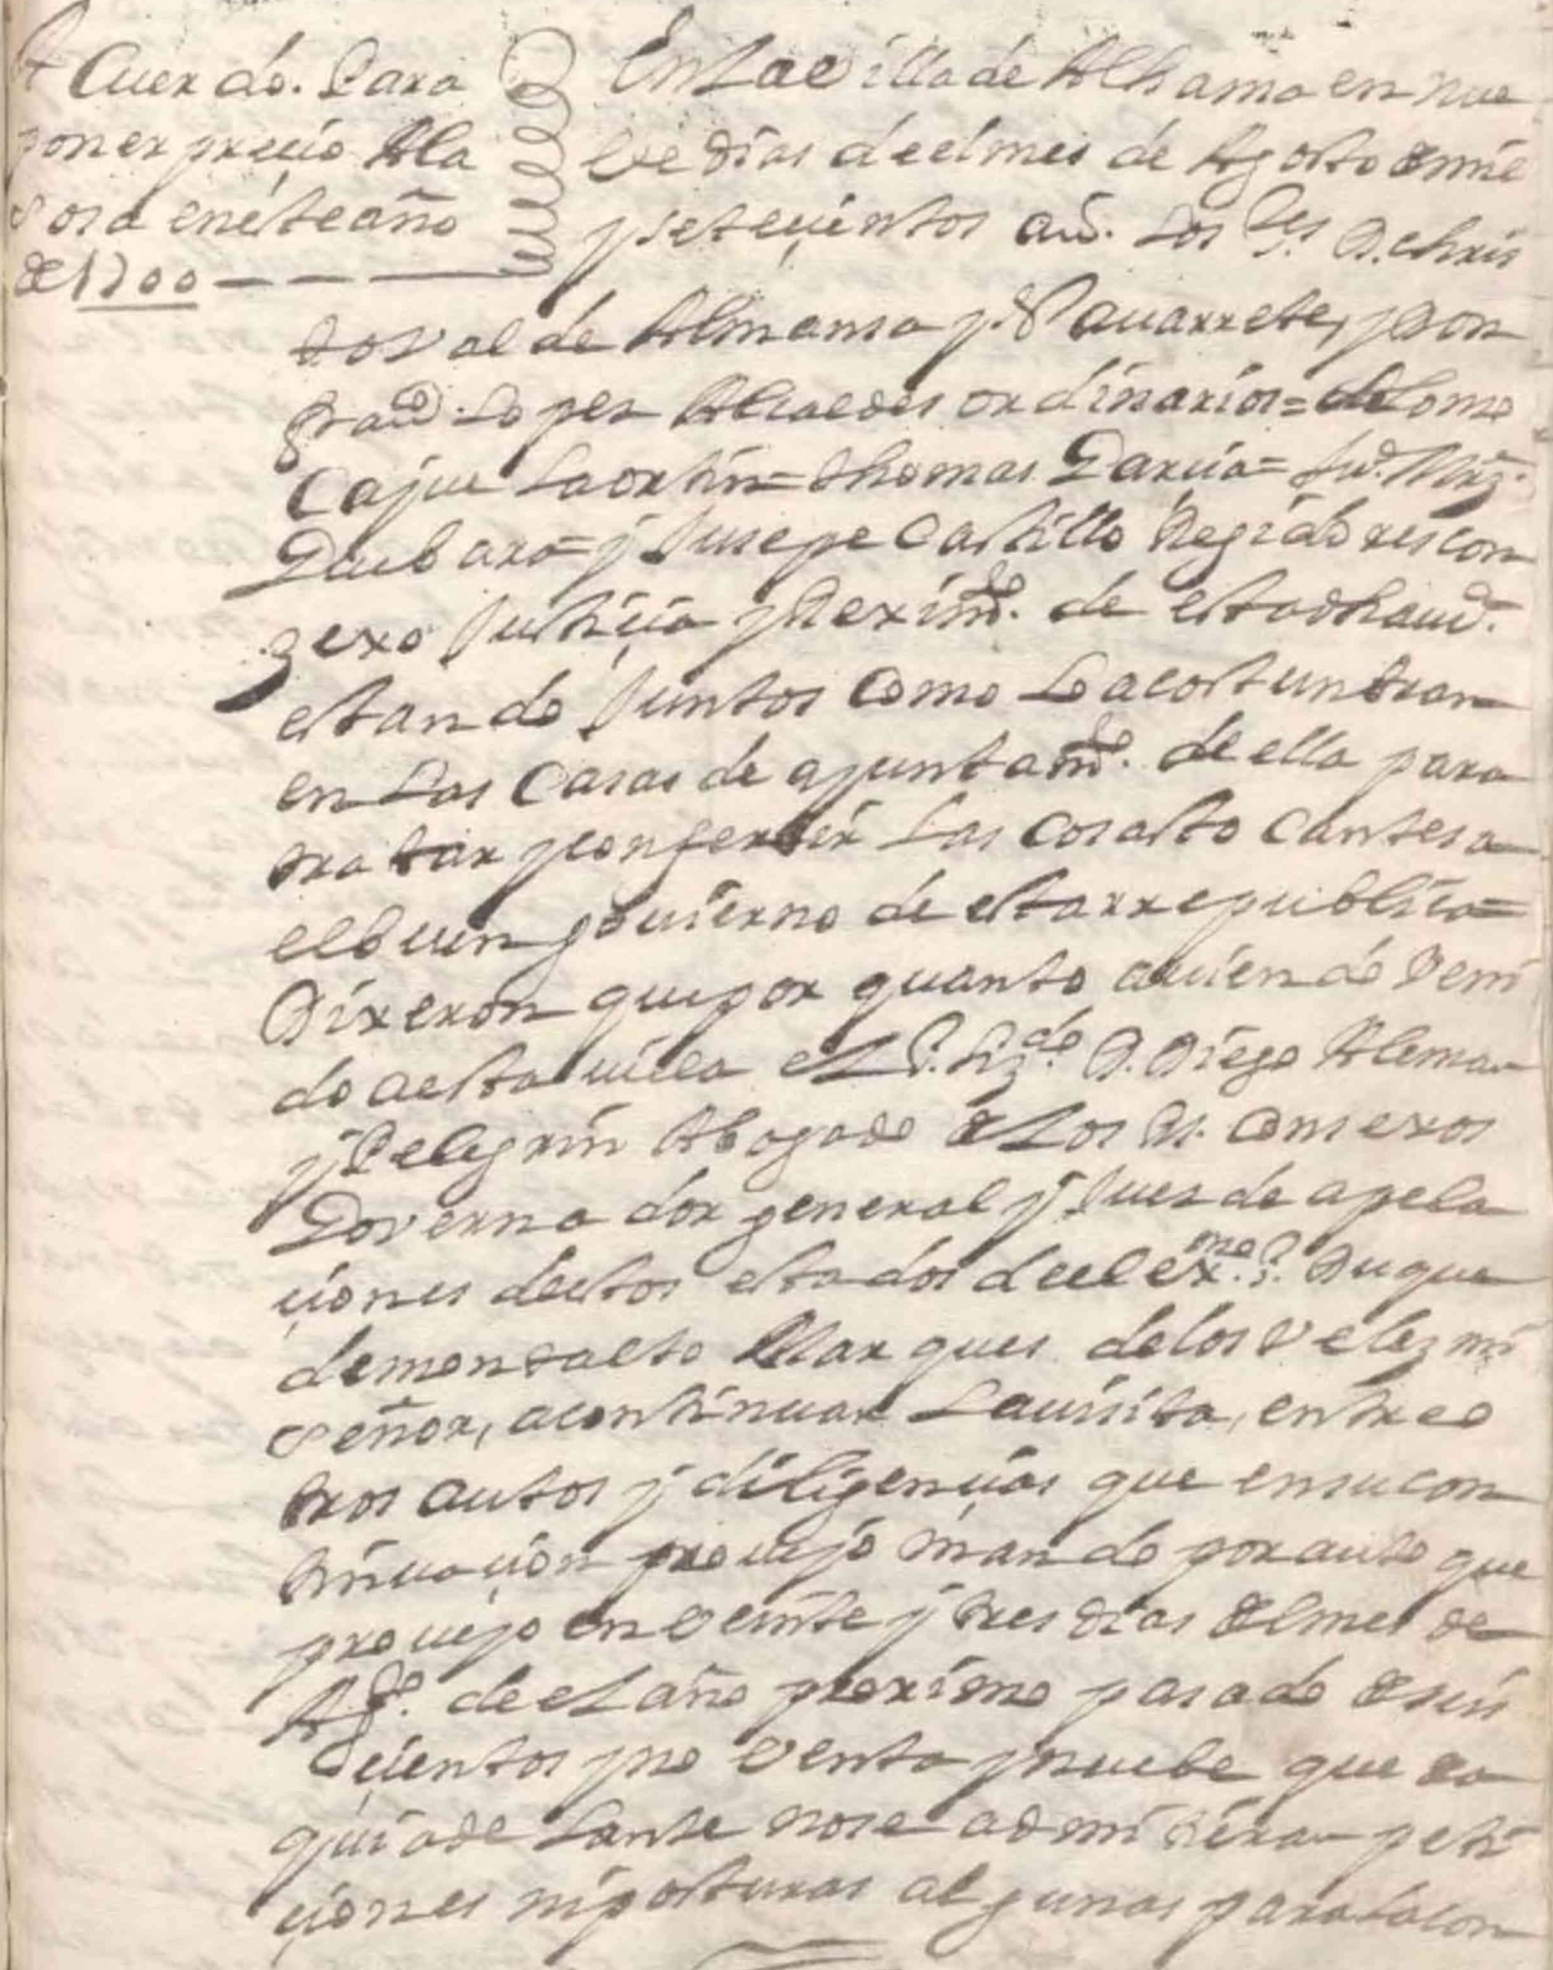 Acuerdo. Para
poner precio Ala
sosa enésteaño
de 1700
En La Villa de Alhama en nue
be dias deel mes de Agosto de mil
y setecientos añ. Los Ses. D. Chris
toval de Almansa y Navarrete, y Don
Lopez Alcaldes ordinarios =
Cajue Laortin = Thomas Garcia = Ju.
Guebara = y Jusepe Castillo Regidores con
zexo Justicia y Reximto. de esta dha
estando Juntos Como Lo acostunbran
en Las Casas de ajuntamto. de ella para
tratar y conferir Las Cosas to Cantes a
el buen gouierno de esta rrepublica =
Dixeron que por quanto auiendo Veni
do a esta uilla el S. Lizdo. D. Diego Aleman
y Pelegrin Abogado de Los Rs. Consexos
Governador general y Juez de apela
ciones destos estados de el exmo. S. Duque
de montalto Marques de los Velez mi
Señor, a continuar La uisita, entre o
tros autos y diligencias que en su con
tinuacion proueyó mando por auto que
proueyo en Veinte y tres dias del mes de
Agto. de el año proximo pasado de seis
cientos y no Venta y nuebe que da
qui ade Lante no se admitiera peti
ciones ni posturas algunas para la con